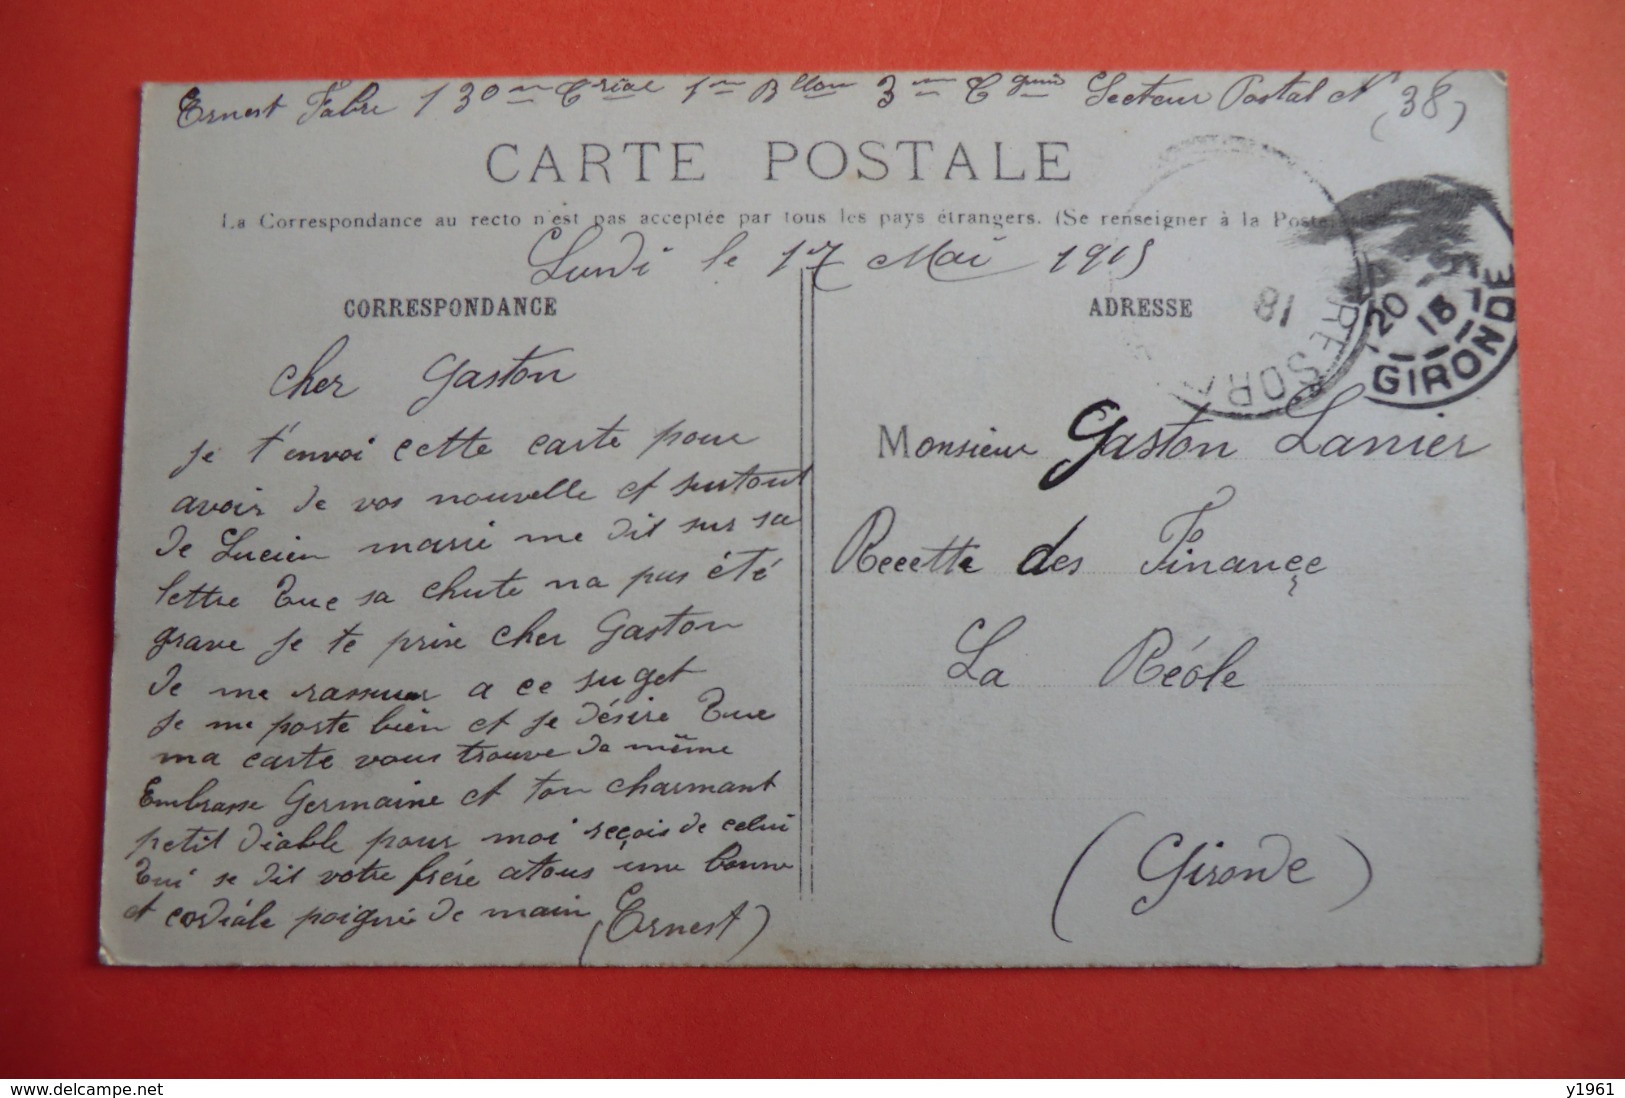 Ernest Fabre 130me Crial 1er Bllon 3me Cgnie Secteur Postal N° (38)
CARTE POSTALE
La Correspondance au recto n'est pas acceptée par tous les pays étrangers. (Se renseigner à la Poste
Lundi le 17 Mai 1915
CORRESPONDANCE
cher Gaston
je t'envoi cette carte pour
avoir de vos nouvelle et surtout
de Lucien me dit sur sa
lettre que sa chute na pas été
grave je te prie cher Gaston
de me rassurer a ce suget
je me porte bien et je désire que
ma carte vous trouve de même
Embrasse Germaine et ton charmant
petit diable pour moi reçois de celui
qui se dit votre frère a tous une bonne
et cordiale poignée de main
(Ernest)
ADRESSE
TRESOR
18
20
15
GIRONDE
Monsieur Gaston Lanier
Recette des Finance
La Réole
(Gironde)
delcampe.net
y1961